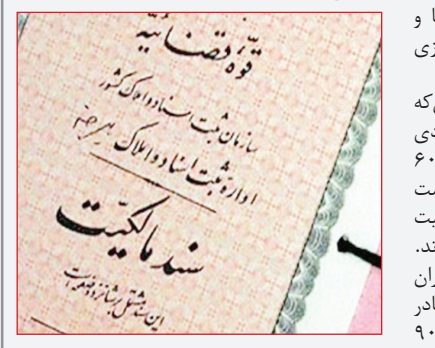 قوه قضائیه
سازمان ثبت اسناد و املاک کشور
اداره ثبت اسناد و املاک بیرجند
سند مالکیت
این سند مشتمل بر شانزده صفحه است
ا و
زی
که
دی
۶۰
ست
یت
ند.
ران
ادر
۹۰